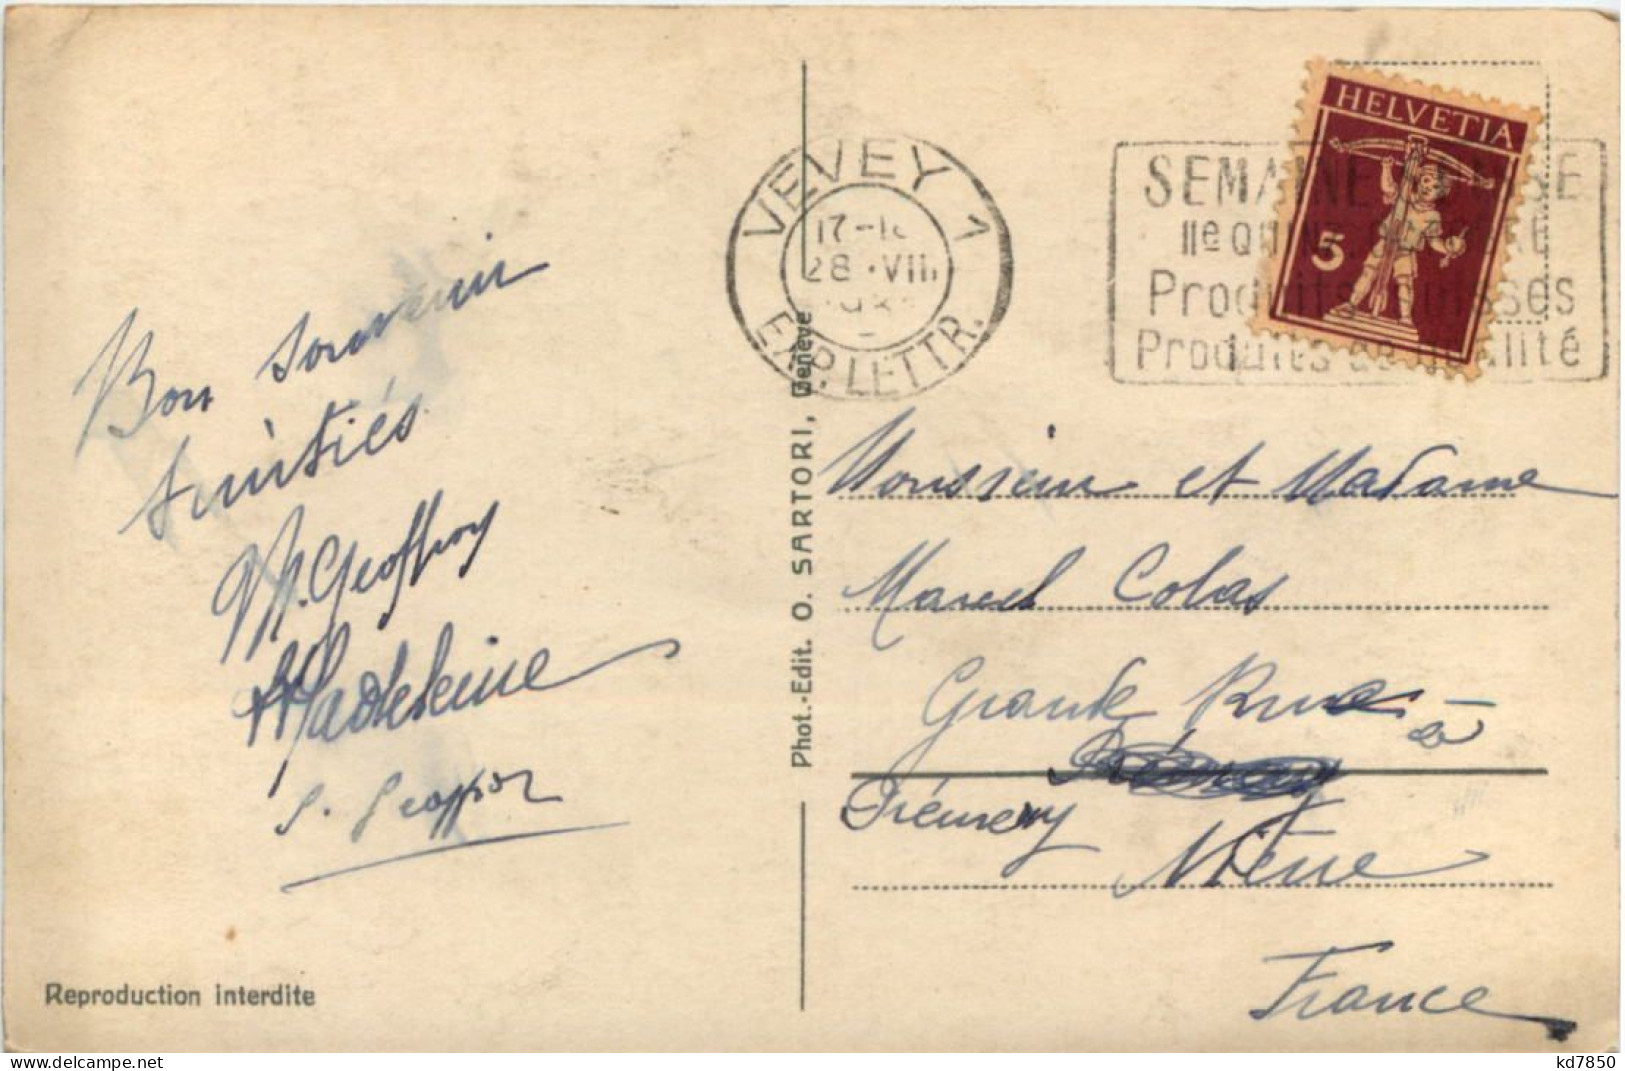 Bon souvenir
Amitiés
M. Geoffroy
Madeleine
Reproduction interdite
Phot.-Edit. O. SARTORI, Genève
VEVEY 1
17-1
28.VIII
EXP. LETTR.
SEMAINE SUISSE
IIe QUINZ. OCTOBRE
Produits suisses
Produits de qualité
HELVETIA
5
Monsieur et Madame
Marcel Colas
Grande Rue à
Prémery
Nièvre
France
kd7850